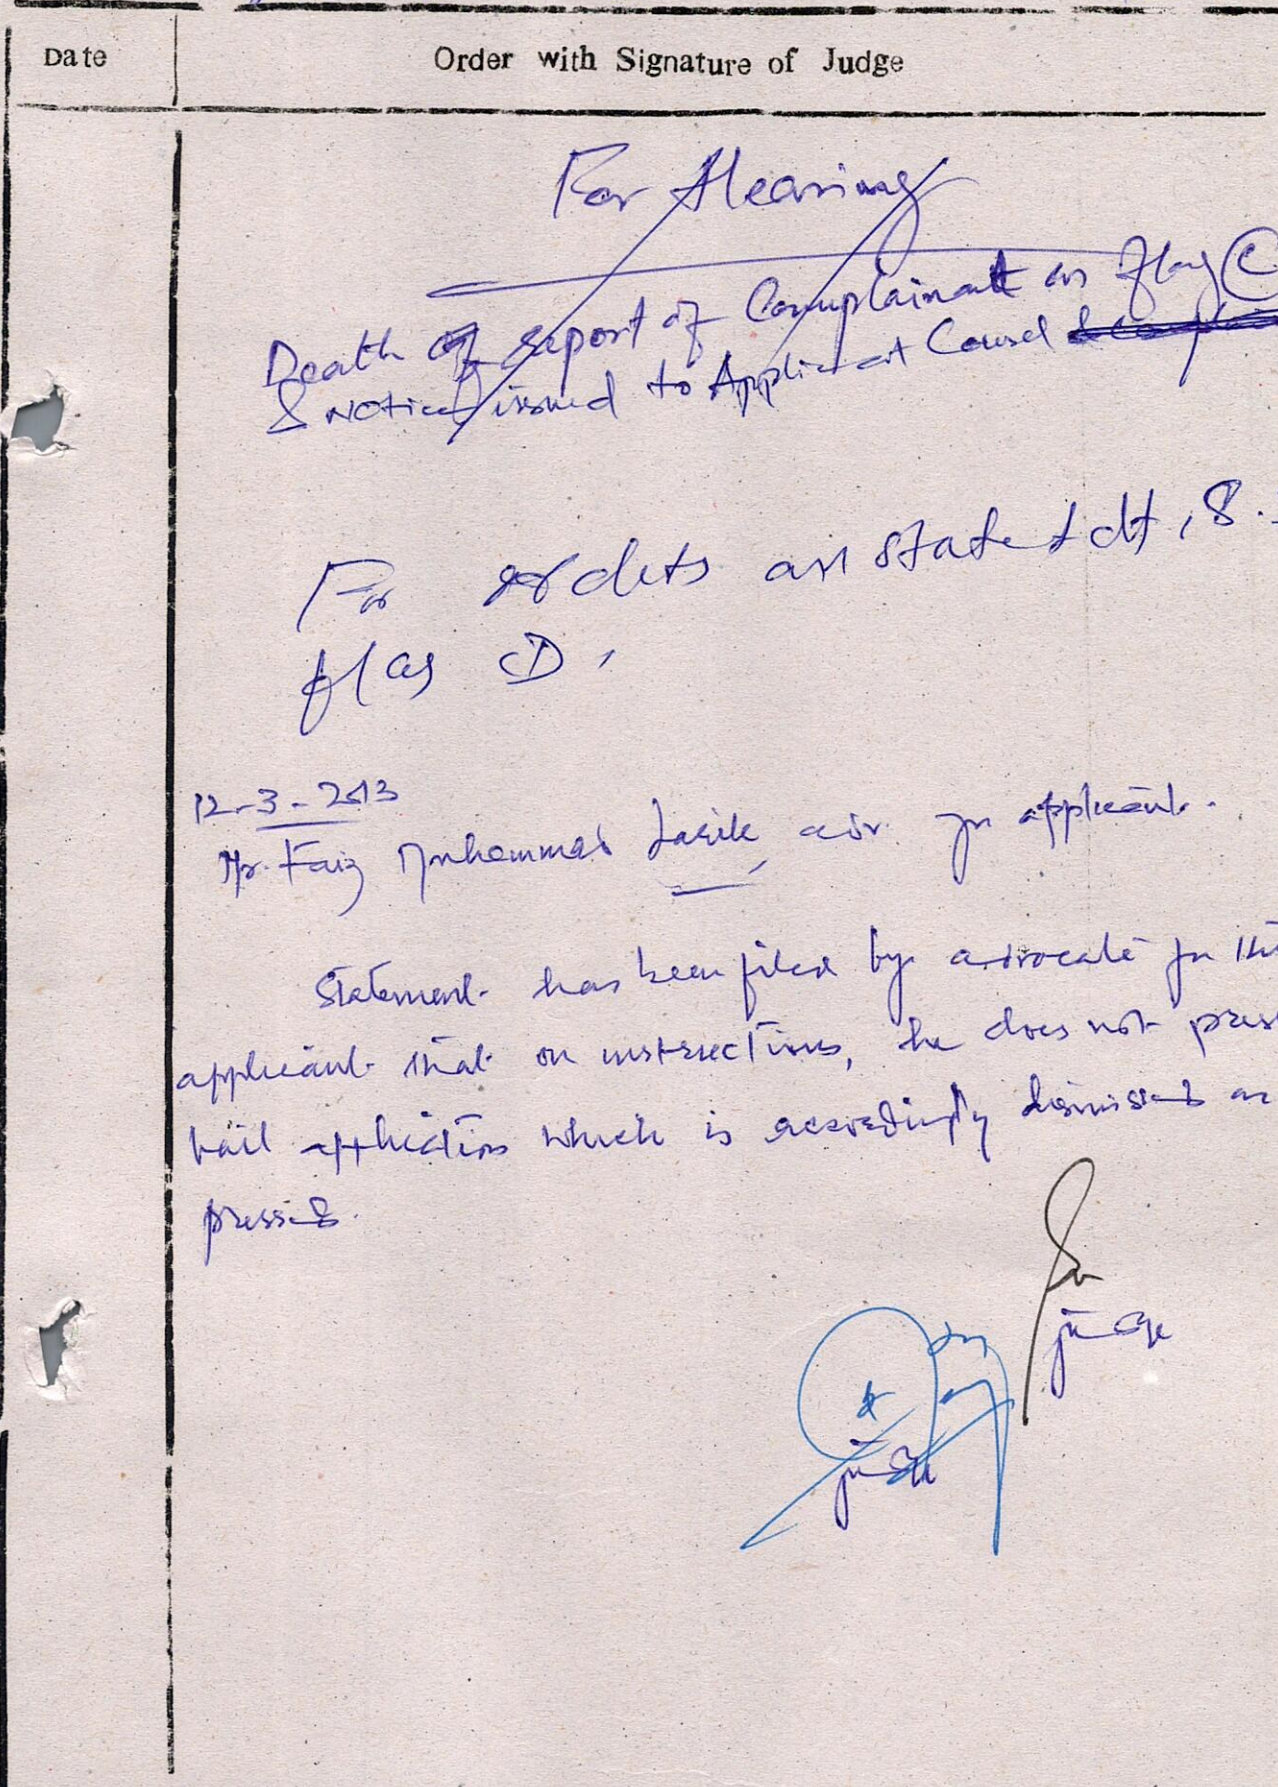 Date
Order with Signature of Judge
For Hearing
Death report of Complainant on flag C
& Notice issued to Applicant Counsel
For orders on statet dt, 8.
flag D.
12-3-2013
Mr. Faiz Muhammad adv for applicant.
Statement has been filed by advocate for the
applicant that on instructions, he does not press
bail application which is accordingly dismissed as
pressed.
judge
judge